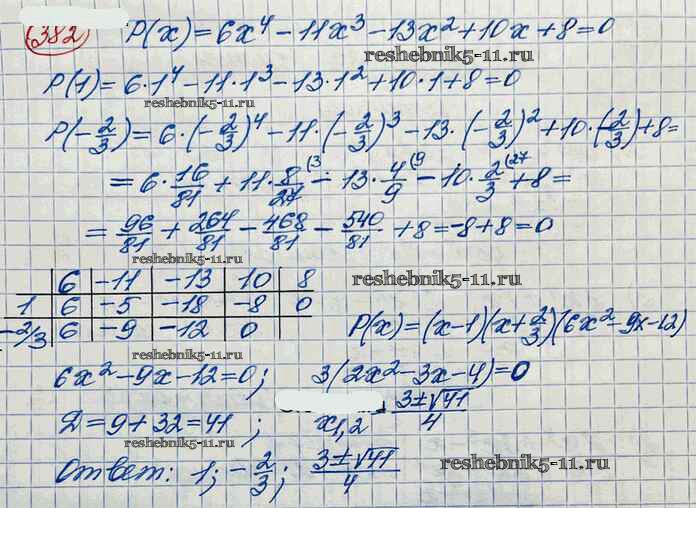 382 P(x)=6x⁴-11x³-13x²+10x+8=0
reshebnik5-11.ru
P(1)=6·1⁴-11·1³-13·1²+10·1+8=0
reshebnik5-11.ru
P(-2/3)=6·(-2/3)⁴-11·(-2/3)³-13·(-2/3)²+10·(-2/3)+8=
=6·16/81+11·8/27(3-13·4/9(9-10·2/3(27+8=
=96/81+264/81-468/81-540/81+8=-8+8=0
reshebnik5-11.ru
6 -11 -13 10 8
reshebnik5-11.ru
1 6 -5 -18 -8 0
-2/3 6 -9 -12 0 P(x)=(x-1)(x+2/3)(6x²-9x-12)
reshebnik5-11.ru
6x²-9x-12=0; 3(2x²-3x-4)=0
reshebnik5-11.ru
Д=9+32=41; x1,2 3±√41/4
reshebnik5-11.ru
Ответ: 1; -2/3; 3±√41/4
reshebnik5-11.ru